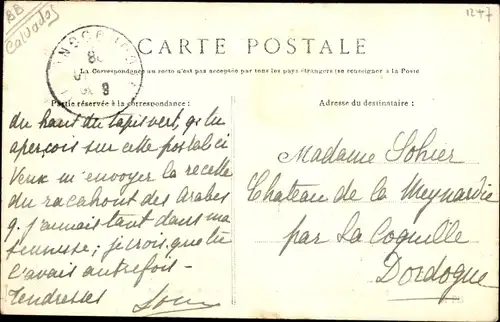 BB
Calvados
1247
CARTE POSTALE
La Correspondance au recto n'est pas acceptée par tous les pays étrangers (se renseigner à la Poste
Partie réservée à la correspondance :
Adresse du destinataire :
du haut du tapis vert, q. tu
aperçois sur cette postale ci
Veux m'envoyer la recette
du racahout des Arabes
q. j'aimais tant dans ma
jeunesse; je crois que tu
l'avais autrefois -
Tendresses
Madame Sohier
Chateau de la Meynardie
par La Coquille
Dordogne